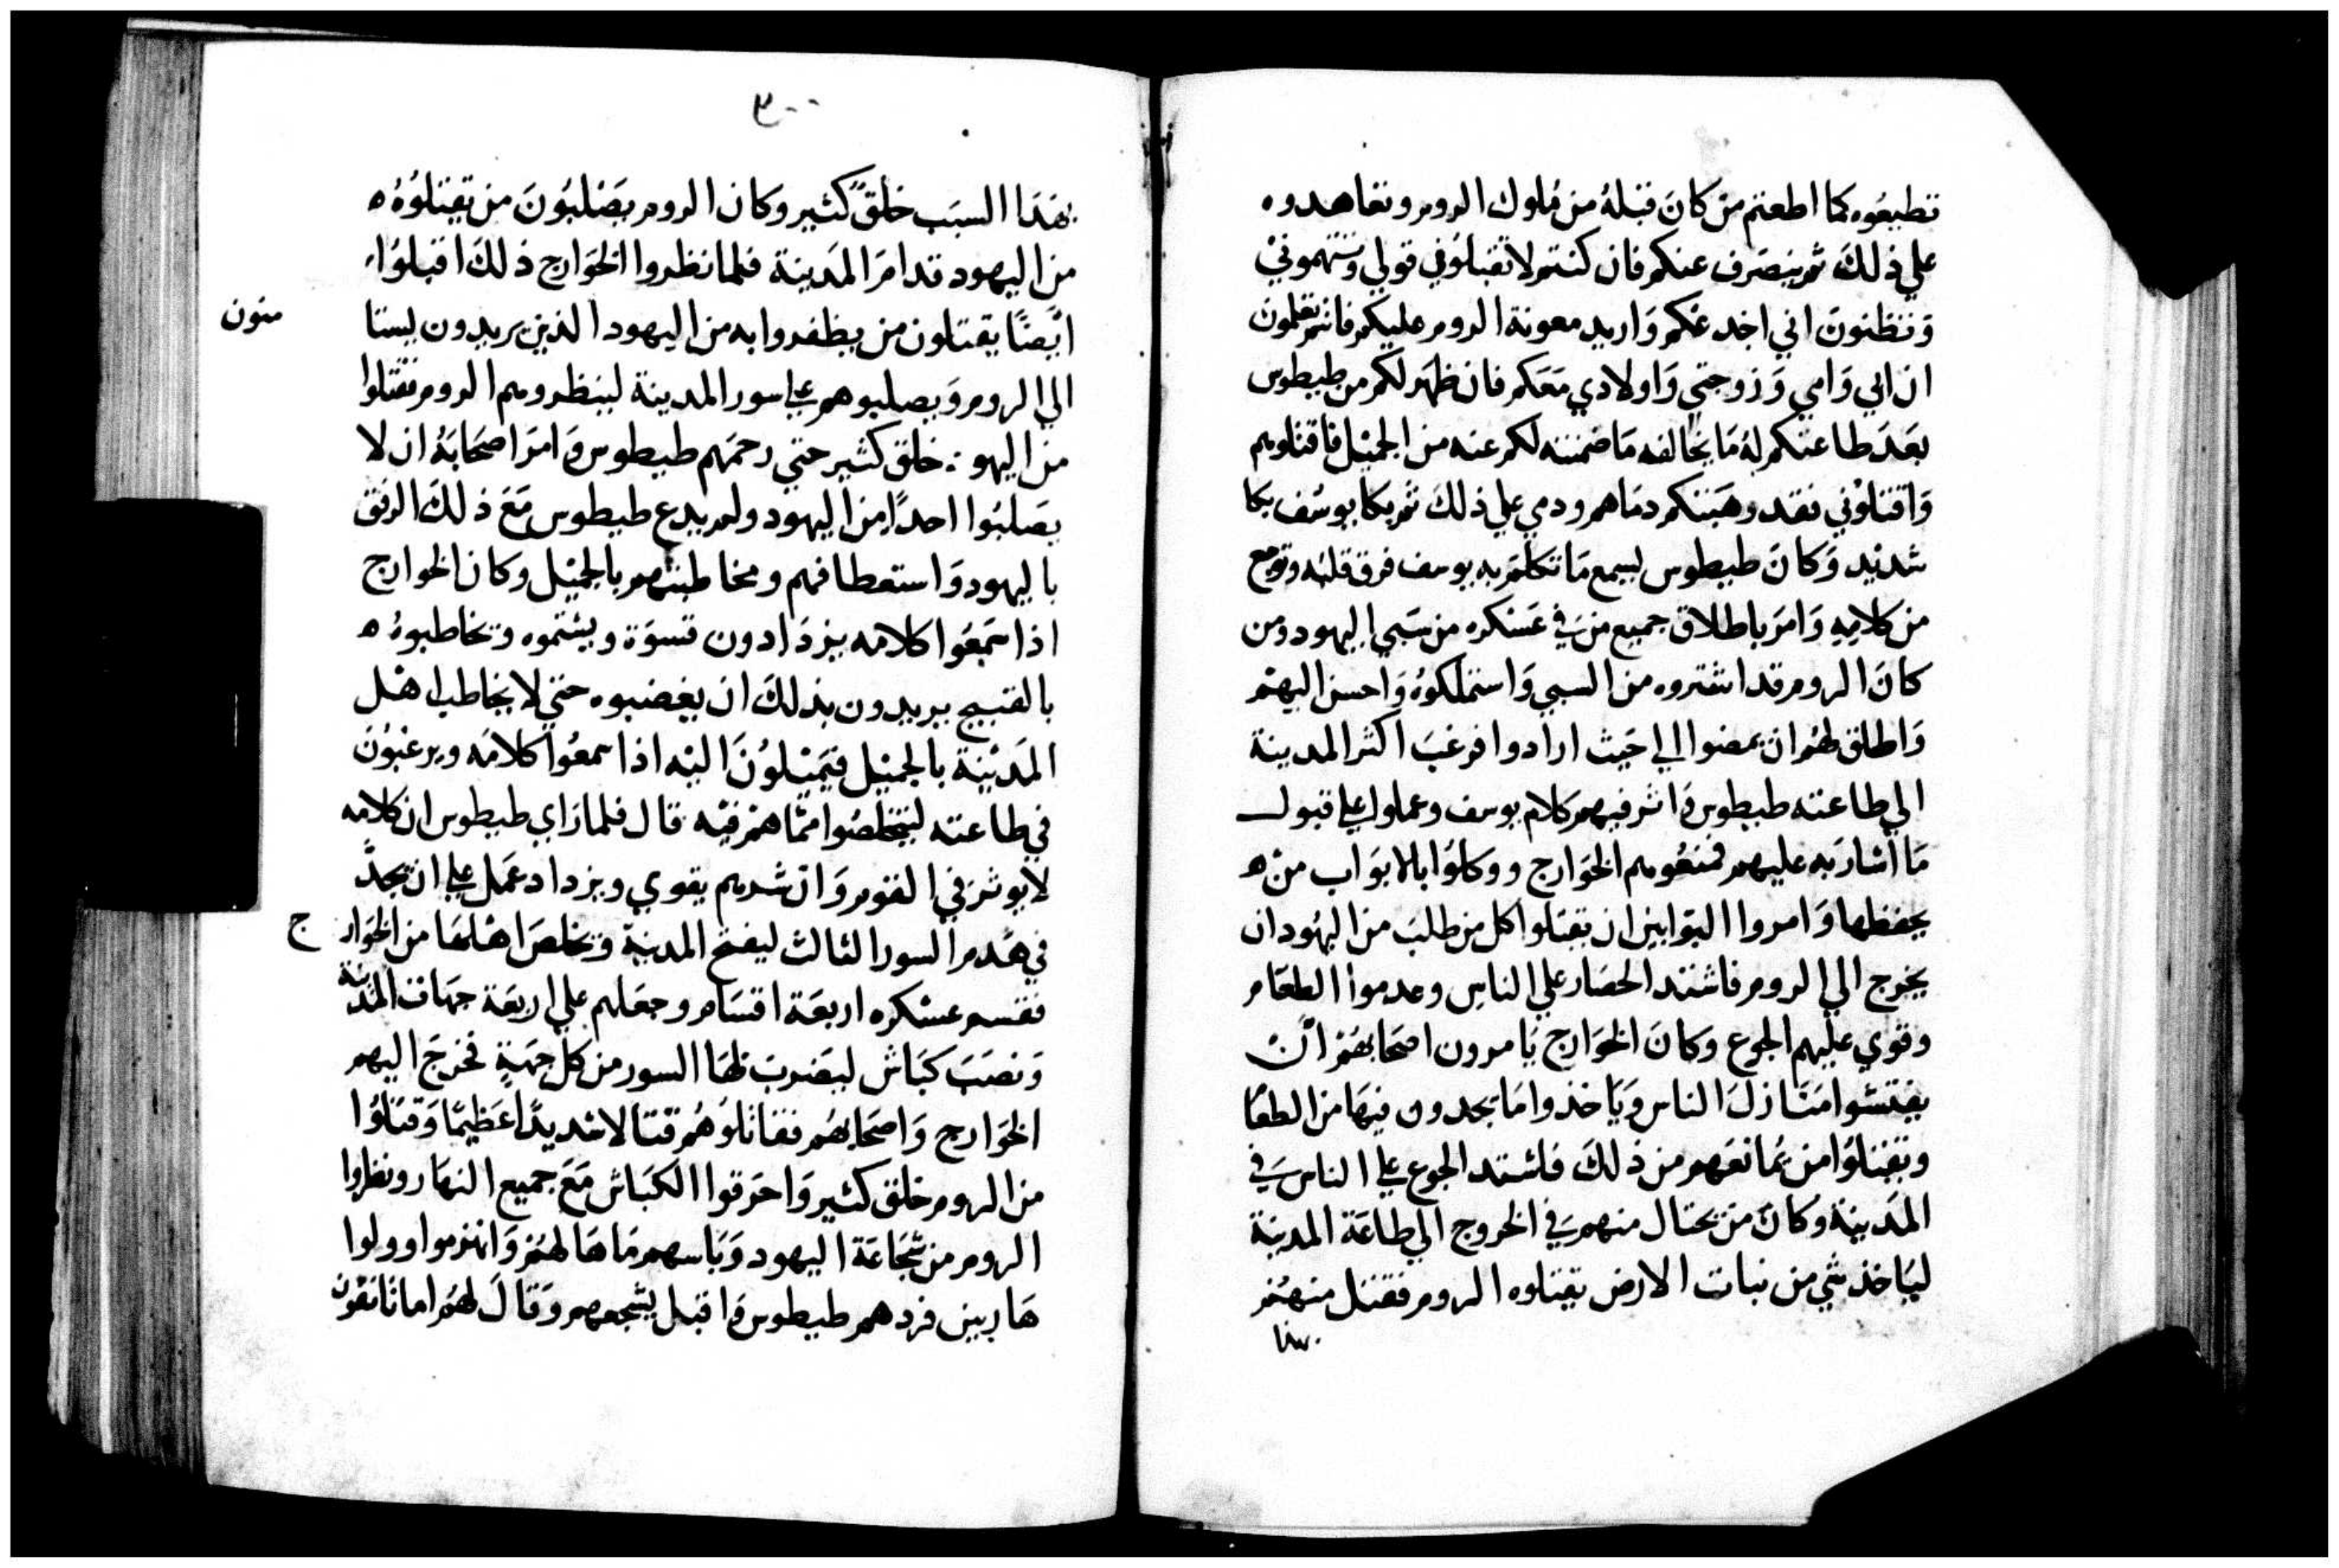 تطيعوه كما اطعتم من كان قبله من ملوك الروم وتعاهدوه
علي ذلك ثم ينصرف عنكم فان كنتم لا تقبلوني قولي وتتهموني
وتظنون اني اخدعكم واريد معونة الروم عليكم فانتم تعلمون
ان ابي وامي وزوجتي واولادي معكم فان ظهر لكم من طيطوس
بعد طاعتكم له ما يخالف ما ضمنته لكم عنه من الجميل فاقتلوهم
واقتلوني فقد وهبتكم دماهم ودمي علي ذلك ثم بكا يوسف بكا
شديد وكان طيطوس يسمع ما تكلم به يوسف فرق قلبه وتوجع
من كلامه وامر باطلاق جميع من في عسكره من سبي اليهود ومن
كان الروم قد اشتروه من السبي واستملكوه واحسن اليهم
واطلق لهم ان يمضوا الي حيث ارادوا فرغب اكثر المدينة
الي طاعته طيطوس واثر فيهم كلام يوسف وعملوا علي قبول
ما اشار به عليهم فمنعوهم الخوارج ووكلوا بالابواب من
يحفظها وامروا البوابين ان يقتلوا كل من طلب من اليهود ان
يخرج الي الروم فاشتد الحصار علي الناس وعدموا الطعام
وقوي عليهم الجوع وكان الخوارج يامرون اصحابهم ان
يفتشوا منازل الناس وياخذوا ما يجدون فيها من الطعا
ويقتلوا من يمانعهم من ذلك فاشتد الجوع علي الناس في
المدينة وكان من يحتال منهم في الخروج الي طاعة المدينة
لياخذ شي من نبات الارض يقتلوه الروم فقتل منهم
بهذا
٣٠٠
بهذا السبب خلق كثير وكان الروم يصلبون من يقتلوه
من اليهود قدام المدينة فلما نظروا الخوارج ذلك اقبلوا
ايضا يقتلون من يظفروا به من اليهود الذين يريدون يستا
منون
الي الروم ويصلبوهم علي سور المدينة لينظروهم الروم فقتلوا
من اليهود خلق كثير حتي رحمهم طيطوس وامر اصحابه ان لا
يصلبوا احدا من اليهود ولم يدع طيطوس مع ذلك الرفق
باليهود واستعطافهم ومخاطبتهم بالجميل وكان الخوارج
اذا سمعوا كلامه يزدادون قسوة ويشتموه وتخاطبوه
بالقبيح يريدون بذلك ان يغضبوه حتي لا يخاطب اهل
المدينة بالجميل فيميلون اليه اذا سمعوا كلامه ويرغبون
في طاعته ليتخلصوا مما هم فيه قال فلما راي طيطوس ان كلامه
لا يوثر في القوم وان شرهم يقوي ويزداد عمل علي ان يجد
في هدم السور الثالث ليفتح المدينة وتخلص اهلها من الخوار
ج
فقسم عسكره اربعة اقسام وجعلهم علي اربعة جهات المدينة
ونصب كباش ليضرب لها السور من كل جهة فخرج اليهم
الخوارج واصحابهم فقاتلوهم قتالا شديدا عظيما وقتلوا
من الروم خلق كثير واحرقوا الكباش مع جميع النهار ونظروا
الروم من شجاعة اليهود وباسهم ما هالهم وانهزموا وولوا
هاربين فردهم طيطوس واقبل يشجعهم وقال لهم اما تانفون